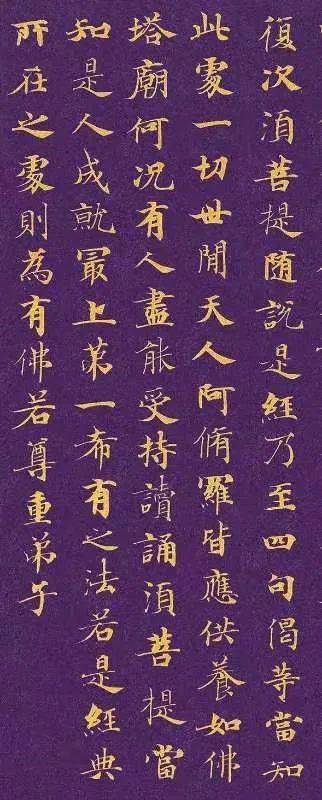 復次須菩提随說是經乃至四句偈等當知
此處一切世間天人阿脩羅皆應供養如佛
塔廟何況有人盡能受持讀誦須菩提當
知是人成就最上第一希有之法若是經典
所在之處則為有佛若尊重弟子